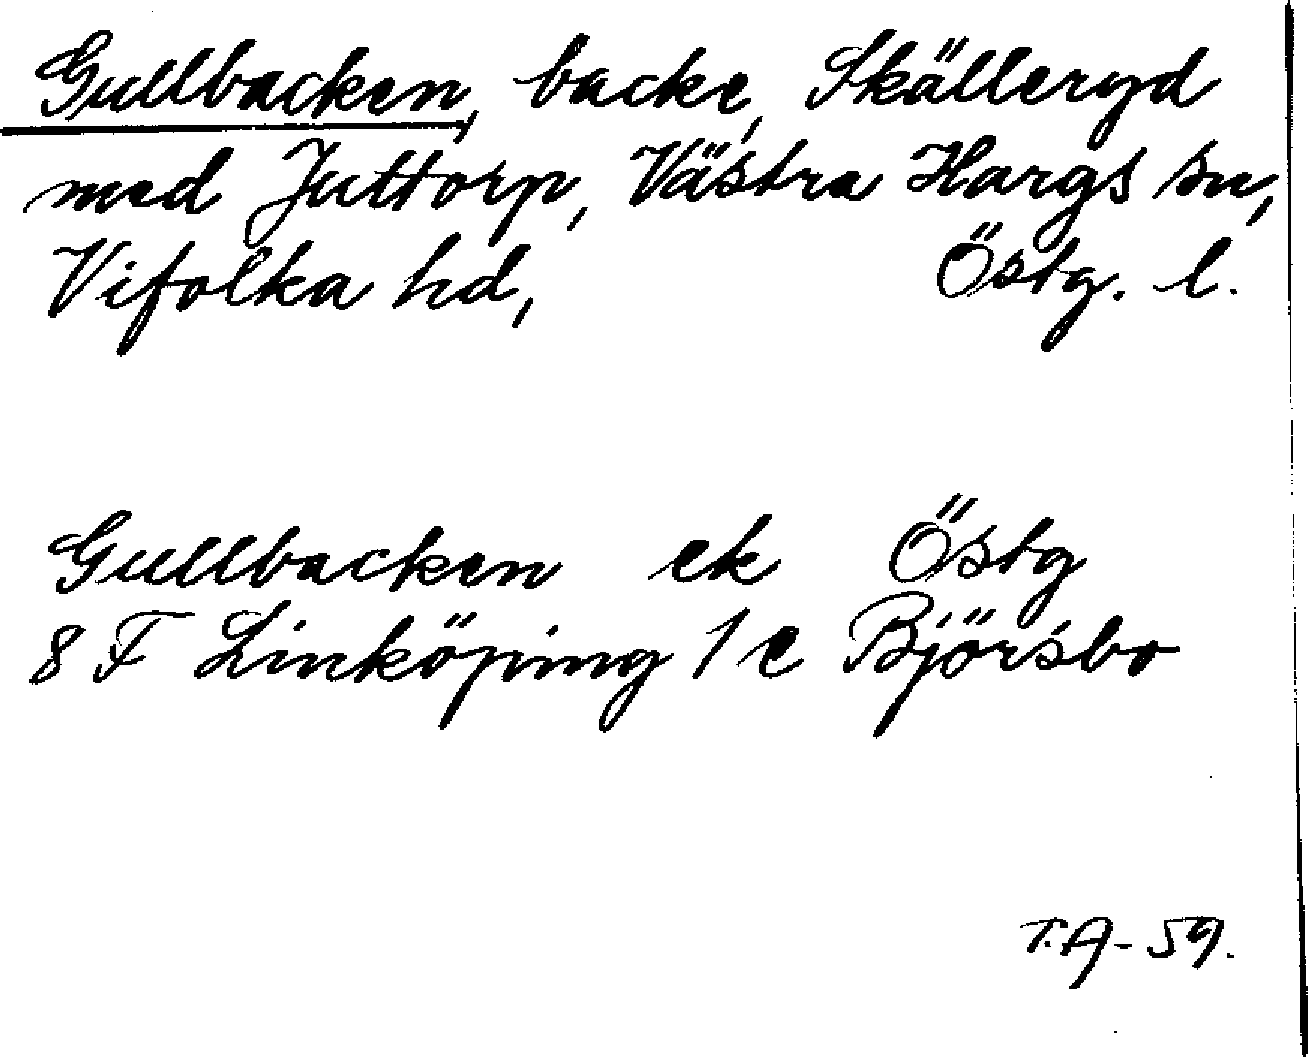 Gullbacken, backe, Skälleryd
med Juttorp, Västra Hargs sn,
Vifolka hd, Östg. l.
Gullbacken ek Östg
8 F Linköping 1 e Björsbo
T.A - 59.